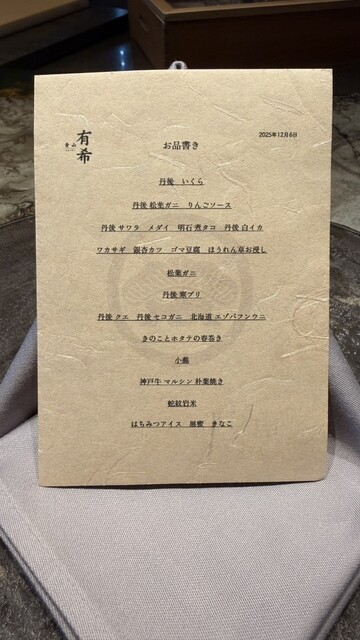 有希
青山
2025年12月6日
お品書き
丹後 いくら
丹後 松葉ガニ りんごソース
丹後 サワラ メダイ 明石 煮タコ 丹後 白イカ
ワカサギ 銀杏カツ ゴマ豆腐 ほうれん草お浸し
松葉ガニ
丹後 寒ブリ
丹後 クエ 丹後 セコガニ 北海道 エゾバフンウニ
きのことホタテの春巻き
小蕪
神戸牛 マルシン 朴葉焼き
蛇紋岩米
はちみつアイス 黒蜜 きなこ